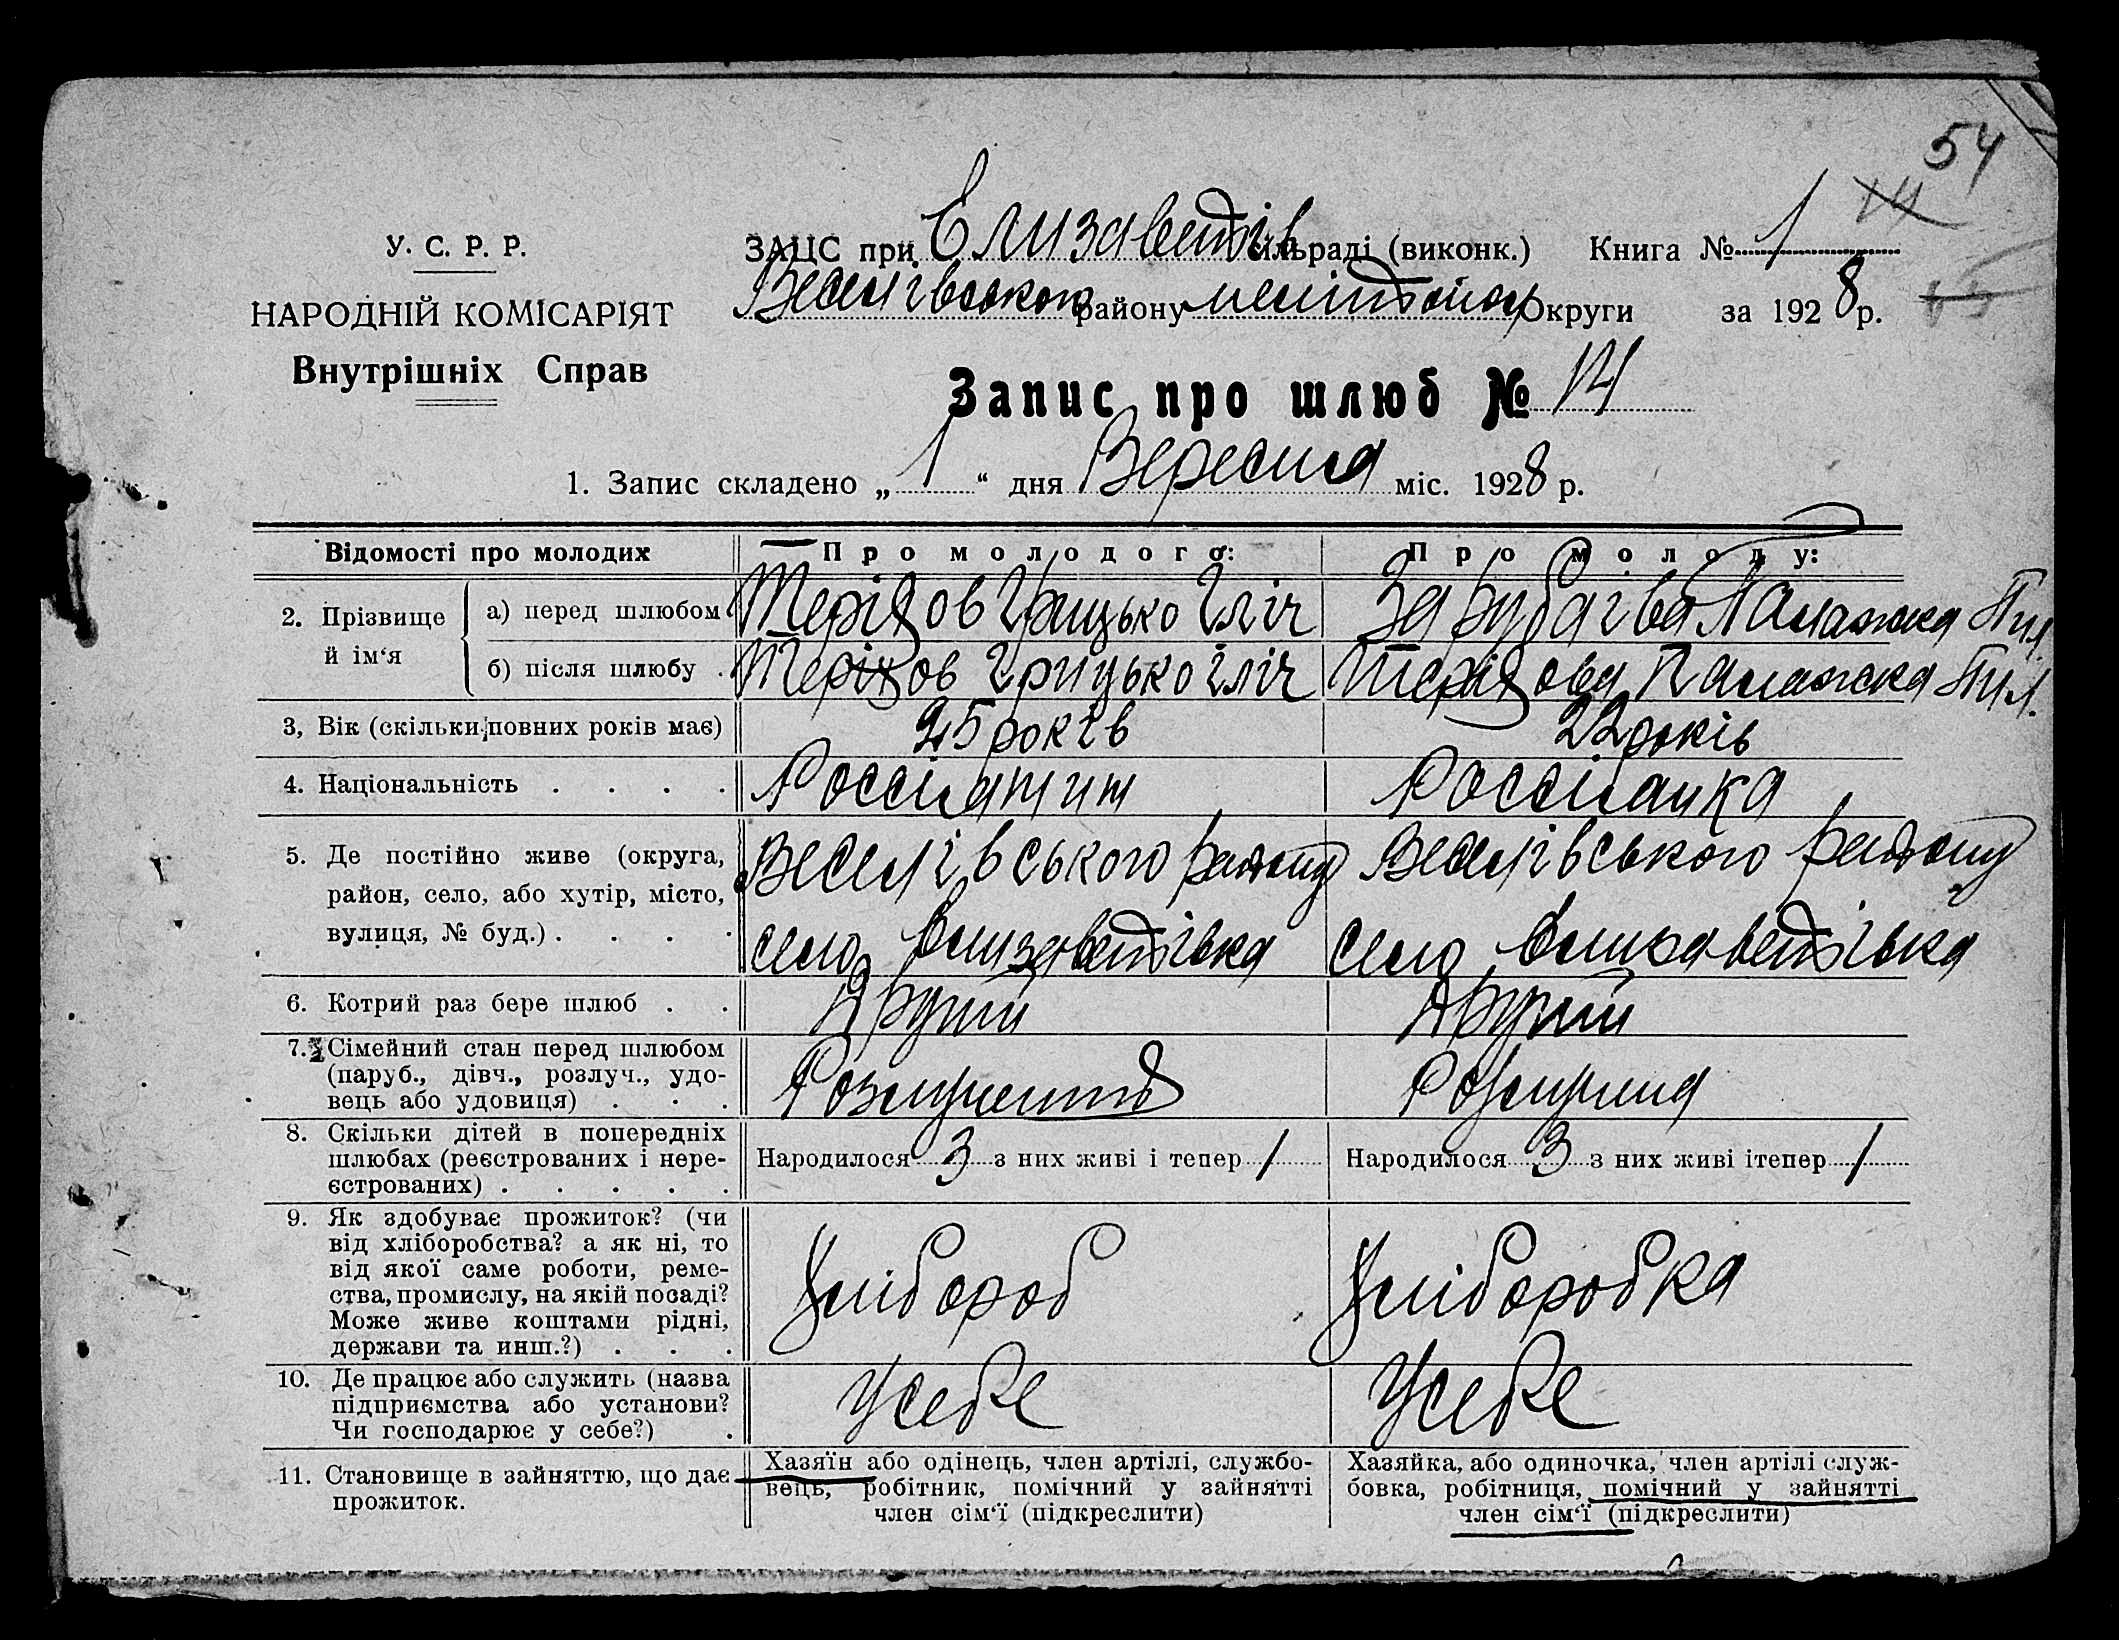 54
14
У. С. Р. Р.
НАРОДНІЙ КОМІСАРІЯТ
Внутрішніх Справ
ЗАЦС при Елизаветів сільраді (виконк.) Книга № 1
Веселівського району Меліт Округи за 1928 р.
15
Запис про шлюб № 14
1. Запис складено „ 1 “ дня Вересня міс. 1928 р.
Відомості про молодих Про молодого: Про молоду:
2. Прізвище й ім‘я
а) перед шлюбом Теріхов Грицько Іліч Зарубаіва Паламажка Пил
б) після шлюбу . Теріхов Грицько Іліч Терїхова Паламажка Пил.
3, Вік (скільки повних років має) 25 років 22 років
4. Національність . . . . Россіянин Россіянка
5. Де постійно живе (округа,
район, село, або хутір, місто,
вулиця, № буд.) . . . .
Веселівського району
село Елизаветівка
Веселівського району
село Елизаветівка
6. Котрий раз бере шлюб . . Другий Другий
7. Сімейний стан перед шлюбом
(паруб., дівч., розлуч., удо-
вець або удовиця) . . .
Розлучений Розлучена
8. Скільки дітей в попередніх
шлюбах (реєстрованих і нере-
єстрованих) . . . . .
Народилося 3 з них живі і тепер 1
Народилося 3 з них живі ітепер 1
9. Як здобуває прожиток? (чи
від хліборобства? а як ні, то
від якої саме роботи, реме-
ства, промислу, на якій посаді?
Може живе коштами рідні,
держави та инш.?) . . .
Хлібороб Хліборобка
10. Де працює або служить (назва
підприємства або установи?
Чи господарює у себе?) .
У себе У себе
11. Становище в зайняттю, що дає
прожиток.
Хазяїн або одінець, член артілі, службо-
вець, робітник, помічний у зайнятті
член сім‘ї (підкреслити)
Хазяйка, або одиночка, член артілі служ-
бовка, робітниця, помічний у зайнятті
член сім‘ї (підкреслити)